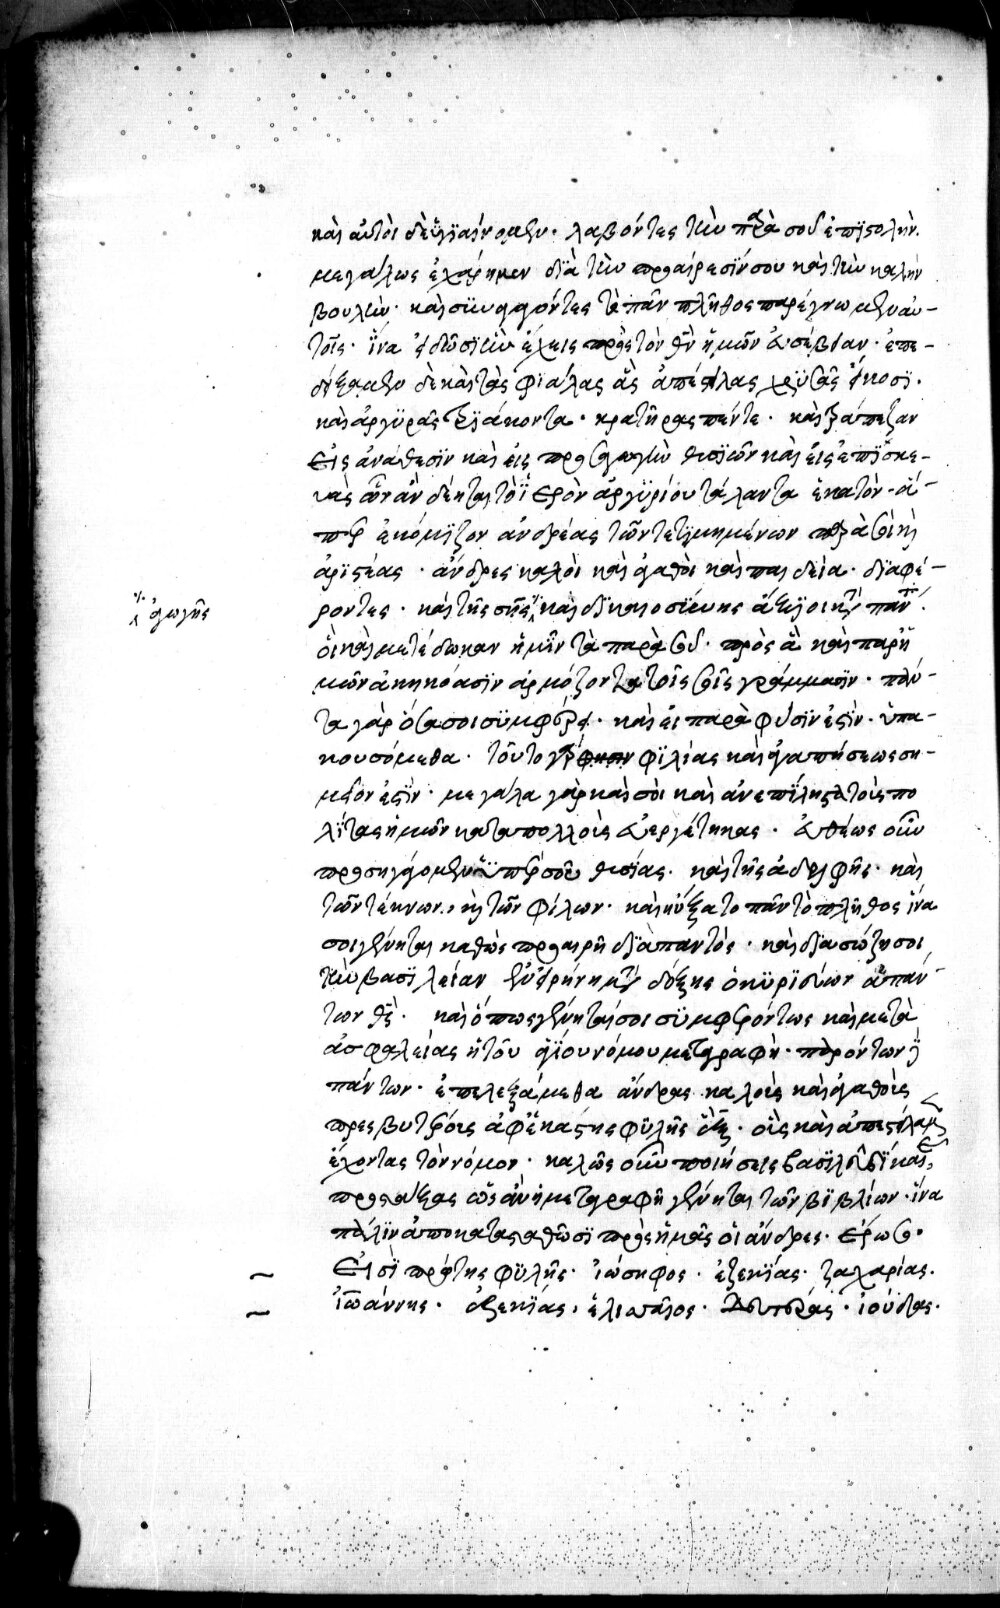 καὶ αὐτοὶ δὲ ὑγϊαίνομεν· λαβόντες τὴν παρὰ σοῦ ἐπιστολὴν.
μεγάλως ἐχάρημεν διὰ τὴν προαίρεσίν σου καὶ τὴν καλὴν
βουλὴν· καὶ συναγαγόντες τὸ πᾶν πλῆθος παρέγνωμεν αὐ-
τοῖς· ἵνα εἰδῶσιν ἣν ἔχεις πρὸς τὸν θν ἡμῶν εὐσέβειαν· ἐπε-
δείξαμεν δὲ καὶ τὰς φιάλας ἃς ἀπέστειλας χρϋσᾶς εἴκοσϊ.
καὶ ἀργϋρᾶς τριάκοντα· κρατῆρας πέντε· καὶ τράπεζαν
εἰς ἀνάθεσϊν καὶ εἰς προσαγωγὴν θυσϊῶν καὶ εἰς ἐπϊσκε-
υὰς ὧν ἂν δέηται τὸ ϊερὸν ἀργϋρίου τάλαντα ἑκατὸν· ἅ-
περ ἐκόμϊζον ἀνδρέας τῶν τετϊμημένων παρὰ σοὶ κὶ
ἀρϊστέας· ἄνδρες καλοὶ καὶ ἀγαθοὶ καὶ παιδεία· διαφέ-
ροντες· καὶ τῆς σῆς καὶ δϊκαιοσύνης ἄξϊοι κτ παν.
ἀγωγῆς
οἳ καὶ μετέδωκαν ἡμῖν τὰ παρὰ σοῦ· πρὸς ἃ καὶ παρ ἡ
μῶν ἀκηκόασϊν ἁρμόζοντα τοῖς σοῖς γράμμασϊν· πάν-
τα γὰρ ὅσα σοι σϋμφέρει· καὶ εἰ παρὰ φύσϊν ἐστὶν· ὑπα-
κουσόμεθα· τοῦτο γὰρ φϊλίας καὶ ἀγαπήσεως ση-
μεῖον ἐστὶν· μεγάλα γὰρ καὶ σὺ καὶ ἀνεπίληστα τοὺς πο
λίτας ἡμῶν κατὰ πολλοὺς εὐεργέτηκας· εὐθέως οὖν
προσηγάγομεν ὑπὲρ σοῦ θυσίας· καὶ τῆς ἀδελφῆς· καὶ
τῶν τέκνων, κὶ τῶν φίλων· καὶ ηὔξατο πᾶν τὸ πλῆθος ἵνα
σοι γένηται καθὼς προαιρῇ διὰ παντὸς· καὶ διασώζῃ σοι
τὴν βασϊλείαν ἐν εἰρήνῃ μτ δόξης ὁ κϋριεύων ἁπάν-
των θς· καὶ ὅπως γένηταί σοι σϋμφερόντως καὶ μετὰ
ἀσφαλείας ἡ τοῦ ἁγίου νόμου μεταγραφὴ· παρόντων
πάντων· ἐπελεξάμεθα ἄνδρας καλοὺς καὶ ἀγαθοὺς
πρεσβυτέρους ἀφ ἑκάστης φϋλῆς ἕξ· οὓς καὶ ἀπεστείλαμεν
ἔχοντας τὸν νόμον· καλῶς οὖν ποιήσεις βασϊλεῦ δϊκαιε,
προστάξας ὡς ἂν ἡ μεταγραφὴ γένηται τῶν βϊβλίων· ἵνα
πάλϊν ἀποκατασταθῶσϊ πρὸς ἡμᾶς οἱ ἄνδρες· ἔρωσο·
Εἰσὶ πρώτης φϋλῆς· ἰώσηφος· ἐζεκϊάς· ζαχαρίας.
ἰωάννης· ἐζεκϊάς, ἐλισσαῖος· ἰούδας.